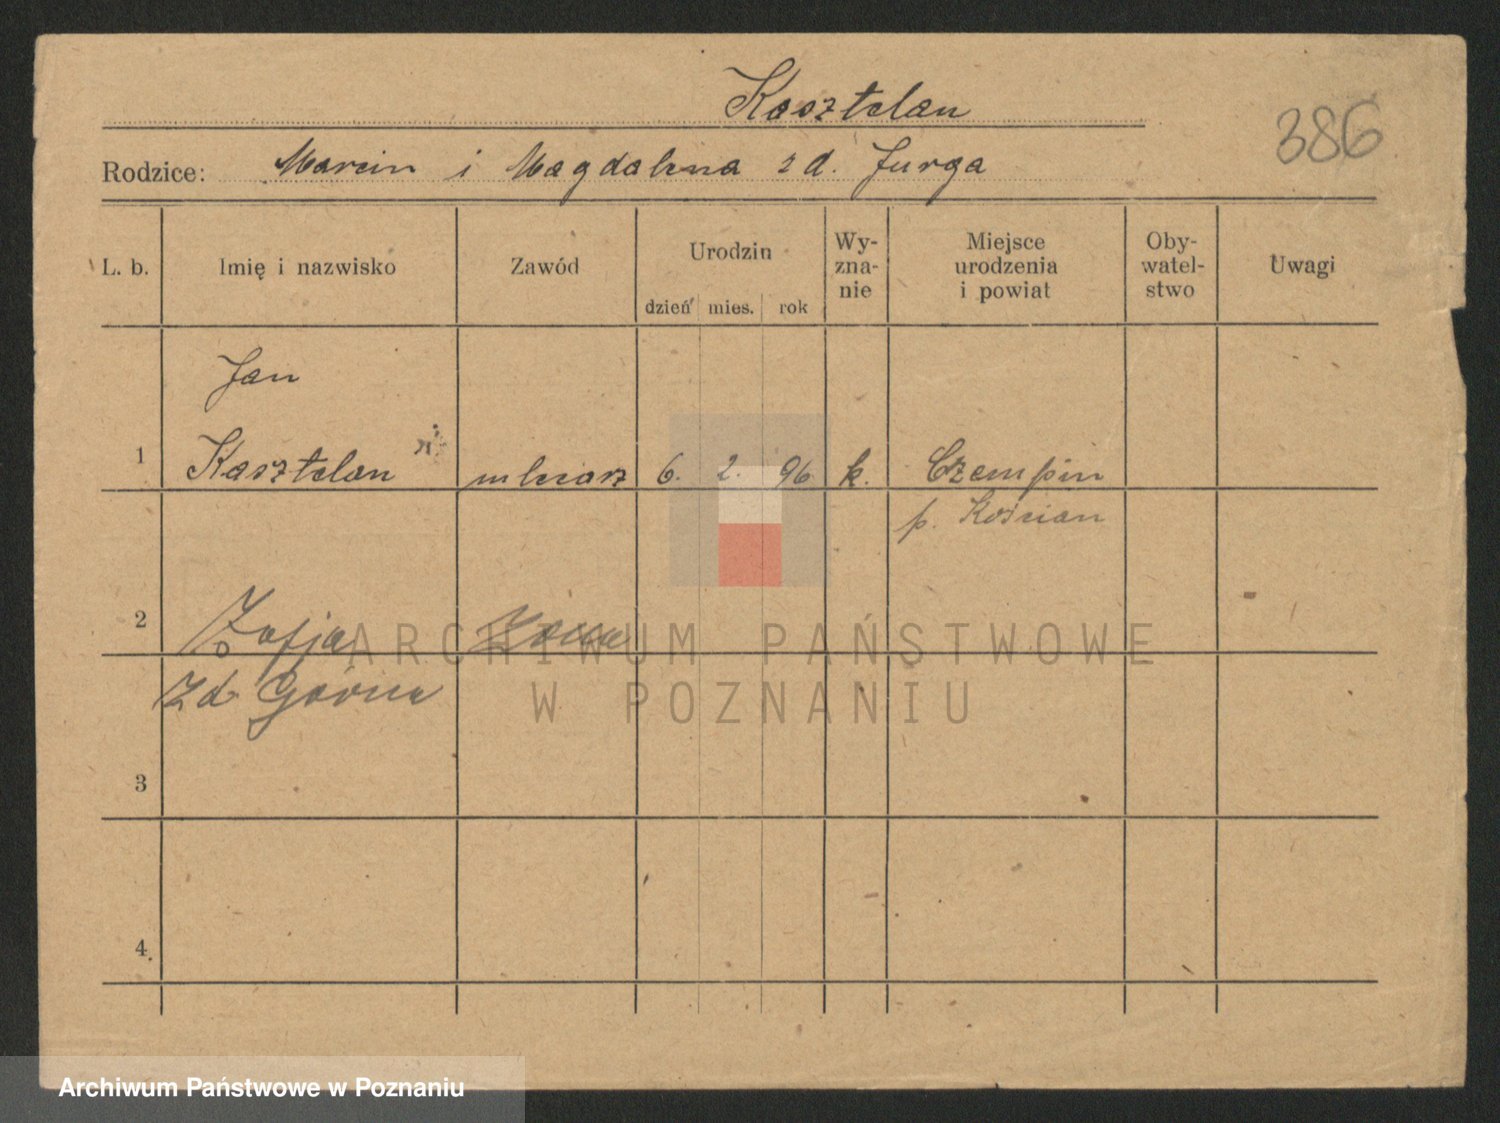 Kasztelan
386
Rodzice: Marcin i Magdalena zd. Jurga
L. b. Imię i nazwisko Zawód Urodzin dzień mies. rok Wy-zna-nie Miejsce urodzenia i powiat Oby-watel-stwo Uwagi
Jan
1 Kasztelan mlecarz 6. 2. 96 k. Czempin
p. Kościan
2 Zofja żona
zd Górna
3
4
ARCHIWUM PAŃSTWOWE
W POZNANIU
Archiwum Państwowe w Poznaniu